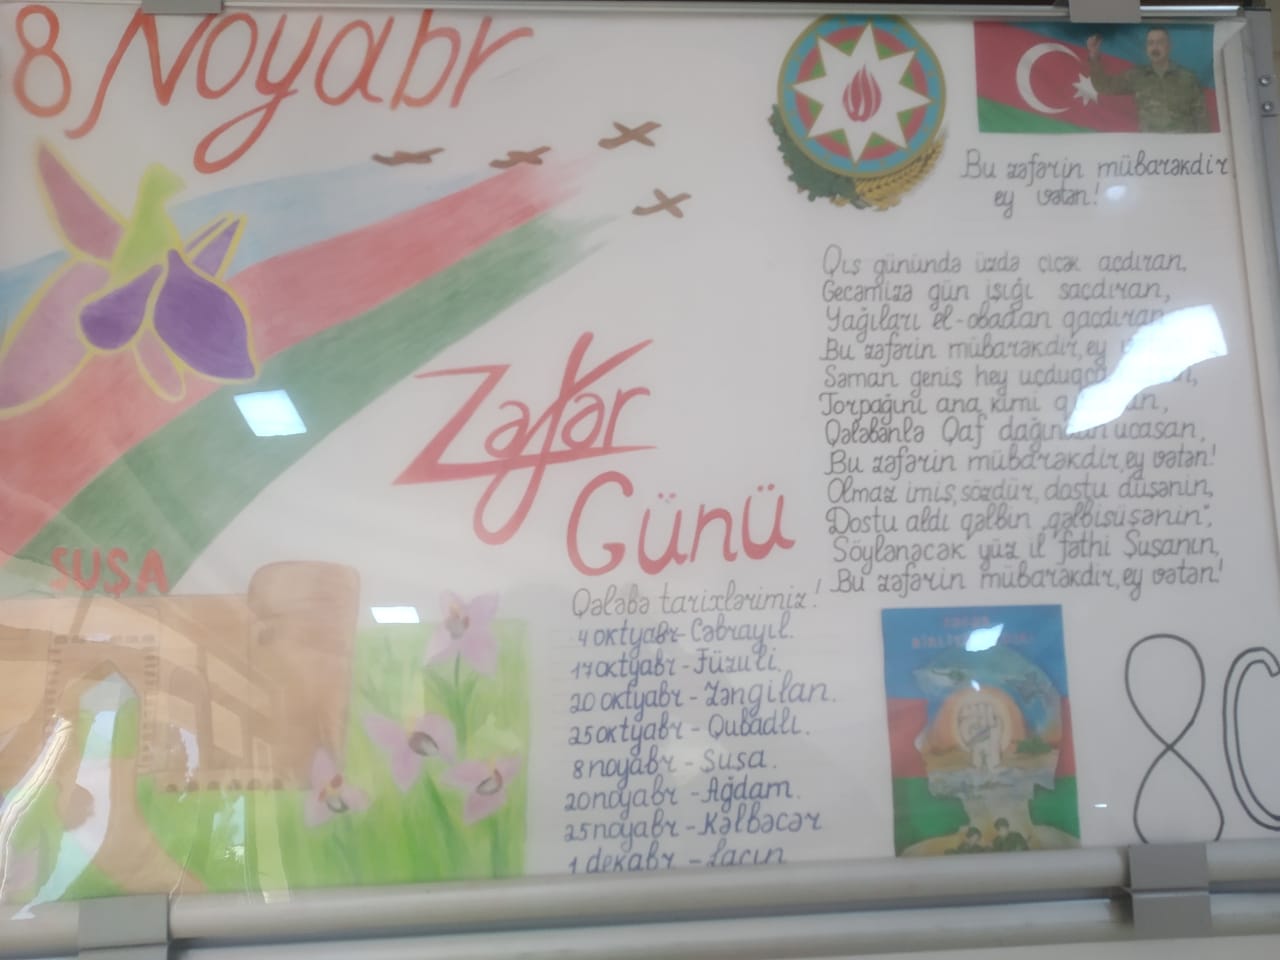 8 Noyabr
Bu zəfərin mübarəkdir,
ey vətən!
Qış günündə üzdə çiçək açdıran,
Gecəmizə gün işığı saçdıran,
Yağıları el-obadan qaçdıran
Bu zəfərin mübarəkdir, ey
Səman geniş hey uçduqca
Torpağını ana kimi
Qələbənlə Qaf dağından ucasan,
Bu zəfərin mübarəkdir, ey vətən!
Olmaz imiş, sözdür, dostu düşənin,
Dostu aldı qəlbin „qəlbişüşənin",
Söylənəcək yüz il fəthi Şuşanın,
Bu zəfərin mübarəkdir, ey vətən!
Zəfər
Günü
ŞUŞA
Qələbə tarixlərimiz!
4 oktyabr- Cəbrayıl.
17 oktyabr - Füzuli.
20 oktyabr - Zəngilan.
25 oktyabr - Qubadlı.
8 noyabr - Şuşa.
20 noyabr - Ağdam.
25 noyabr - Kəlbəcər
1 dekabr - Laçın
8C